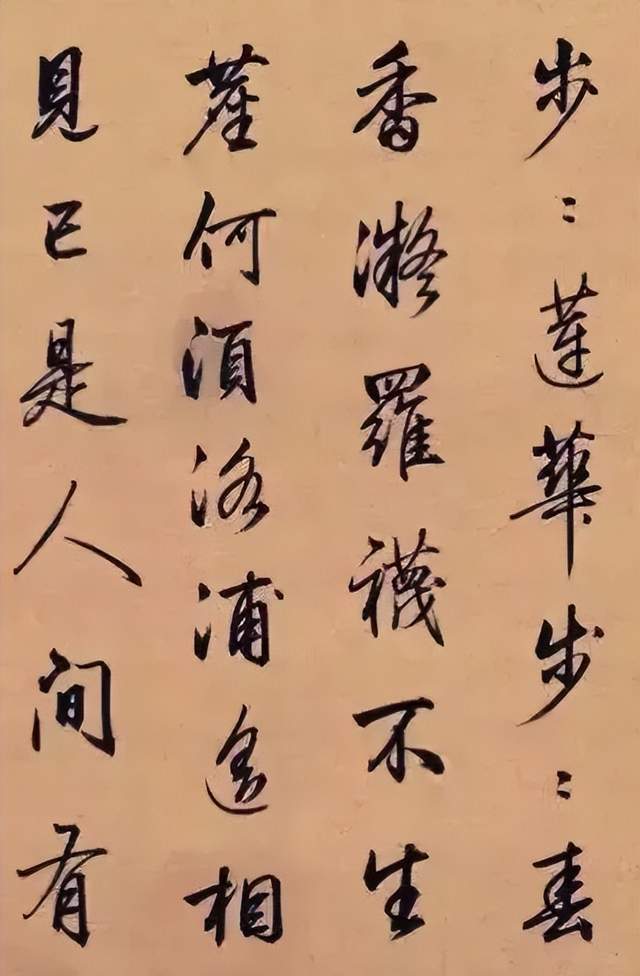 步〻蓮華步〻春
香凝羅襪不生
塵何須洛浦遙相
見已是人間有